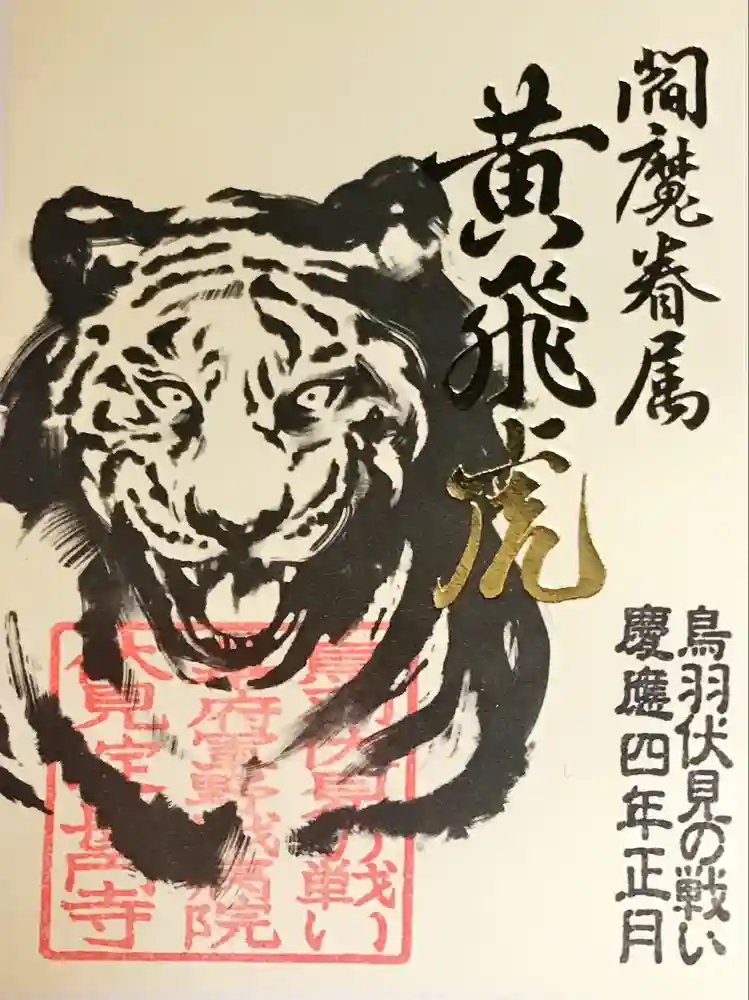 閻魔眷属
黄飛虎
鳥羽伏見の戦い
慶應四年正月
鳥羽伏見の戦い
幕府軍野戦病院
伏見
寺